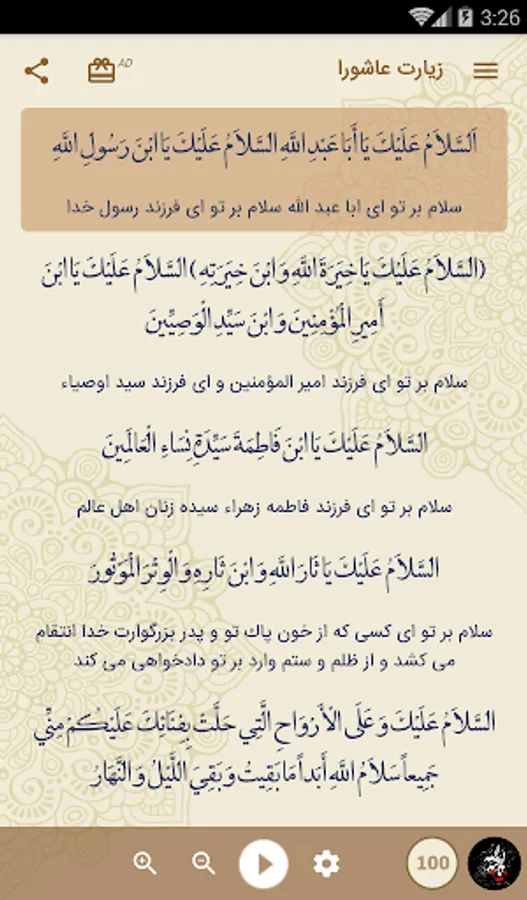 3:26
زیارت عاشورا
AD
اَلسَّلاَمُ عَلَيْكَ يَا أَبَا عَبْدِ اللَّهِ السَّلاَمُ عَلَيْكَ يَا ابْنَ رَسُولِ اللَّهِ
سلام بر تو ای ابا عبد الله سلام بر تو ای فرزند رسول خدا
(السَّلاَمُ عَلَيْكَ يَا خِيَرَةَ اللَّهِ وَ ابْنَ خِيَرَتِهِ) السَّلاَمُ عَلَيْكَ يَا ابْنَ
أَمِيرِ الْمُؤْمِنِينَ وَ ابْنَ سَيِّدِ الْوَصِيِّينَ
سلام بر تو ای فرزند امیر المؤمنین و ای فرزند سید اوصیاء
السَّلاَمُ عَلَيْكَ يَا ابْنَ فَاطِمَةَ سَيِّدَةِ نِسَاءِ الْعَالَمِينَ
سلام بر تو ای فرزند فاطمه زهراء سیده زنان اهل عالم
السَّلاَمُ عَلَيْكَ يَا ثَارَ اللَّهِ وَ ابْنَ ثَارِهِ وَ الْوِتْرَ الْمَوْتُورَ
سلام بر تو ای کسی که از خون پاك تو و پدر بزرگوارت خدا انتقام
می کشد و از ظلم و ستم وارد بر تو دادخواهی می کند
السَّلاَمُ عَلَيْكَ وَ عَلَى الْأَرْوَاحِ الَّتِي حَلَّتْ بِفِنَائِكَ عَلَيْكُمْ مِنِّي
جَمِيعاً سَلاَمُ اللَّهِ أَبَداً مَا بَقِيتُ وَ بَقِيَ اللَّيْلُ وَ النَّهَارُ
100